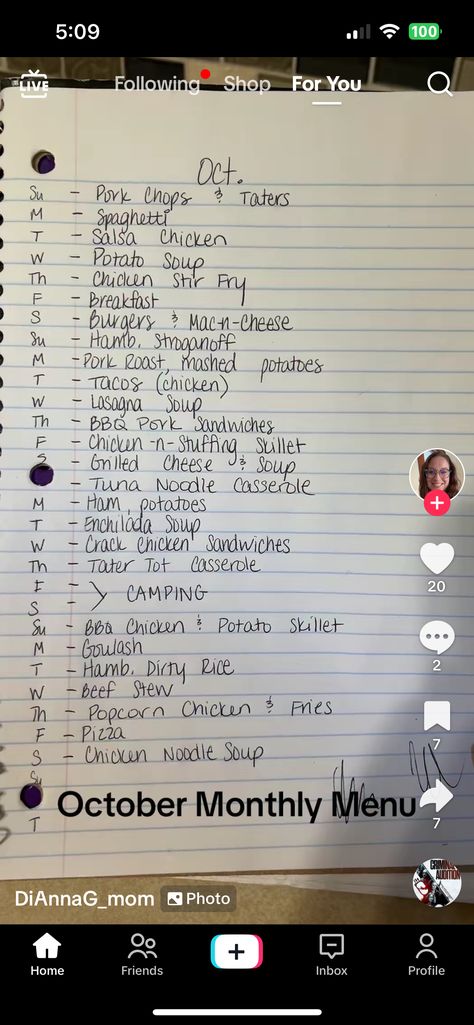 5:09
100
LIVE
Following
Shop
For You
Oct.
Su - Pork Chops & Taters
M - Spaghetti
T - Salsa Chicken
W - Potato Soup
Th - Chicken Stir Fry
F - Breakfast
S - Burgers & Mac-n-Cheese
Su - Hamb. Stroganoff
M - Pork Roast, mashed potatoes
T - Tacos (chicken)
W - Lasagna Soup
Th - BBQ Pork Sandwiches
F - Chicken-n-Stuffing Skillet
S - Grilled Cheese & Soup
- Tuna Noodle Casserole
M - Ham, potatoes
T - Enchilada Soup
W - Crack Chicken Sandwiches
Th - Tater Tot Casserole
F - } CAMPING
S -
Su - BBQ Chicken & Potato Skillet
M - Goulash
T - Hamb. Dirty Rice
W - Beef Stew
Th - Popcorn Chicken & Fries
F - Pizza
S - Chicken Noodle Soup
Su
T
20
2
7
7
October Monthly Menu
CRIMINAL AUDITION
DiAnnaG_mom
Photo
Home
Friends
Inbox
Profile